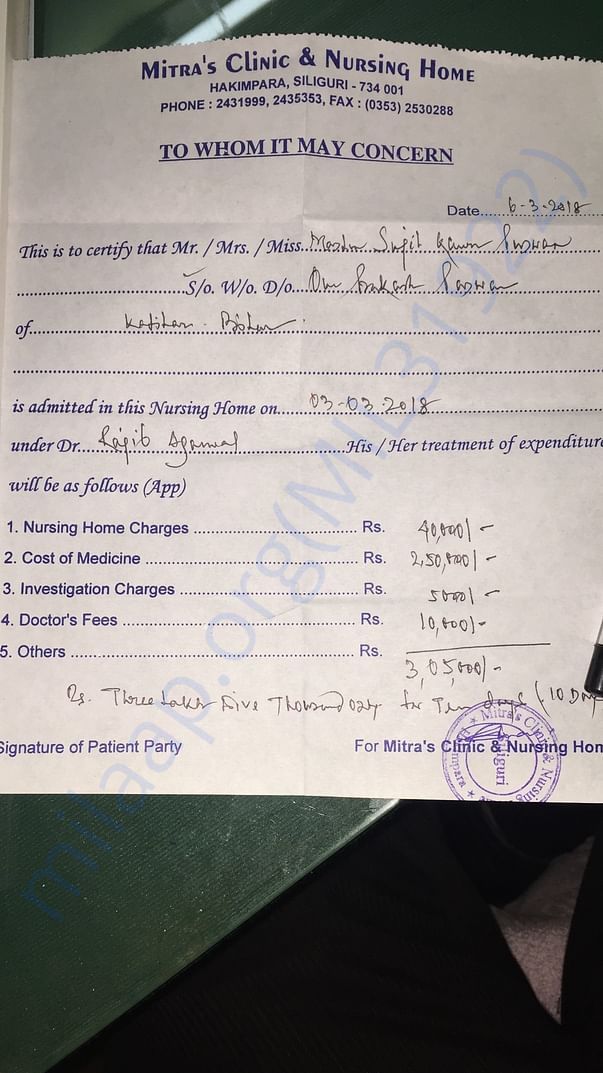 MITRA'S CLINIC & NURSING HOME
HAKIMPARA, SILIGURI - 734 001
PHONE : 2431999, 2435353, FAX : (0353) 2530288
TO WHOM IT MAY CONCERN
Date......6-3-2018
This is to certify that Mr. / Mrs. / Miss...Master Sujit Paswan
S/o. W/o. D/o...Om Prakash Paswan
of...Katihar. Bihar
is admitted in this Nursing Home on...03-03-2018
under Dr...Rajib Agarwal...His / Her treatment of expenditure
will be as follows (App)
1. Nursing Home Charges ... Rs. 40,000/-
2. Cost of Medicine ... Rs. 2,50,000/-
3. Investigation Charges ... Rs. 5000/-
4. Doctor's Fees ... Rs. 10,000/-
5. Others ... Rs.
3,05,000/-
Rs. Three Lakhs Five Thousand only for Ten days (10 Days
Signature of Patient Party
For Mitra's Clinic & Nursing Hom
Mitra's Clinic & Nursing
Siliguri
milaap.org(MIL31922)